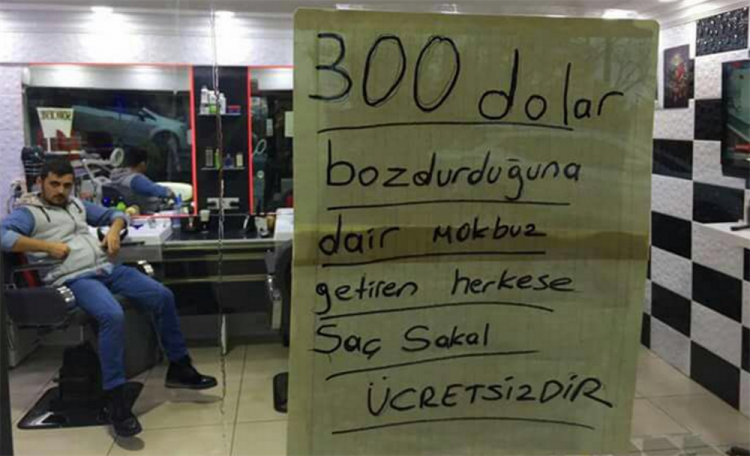 300 dolar
bozdurduğuna
dair MAKbuz
getiren herkese
Saç Sakal
ÜCRETSiZDİR